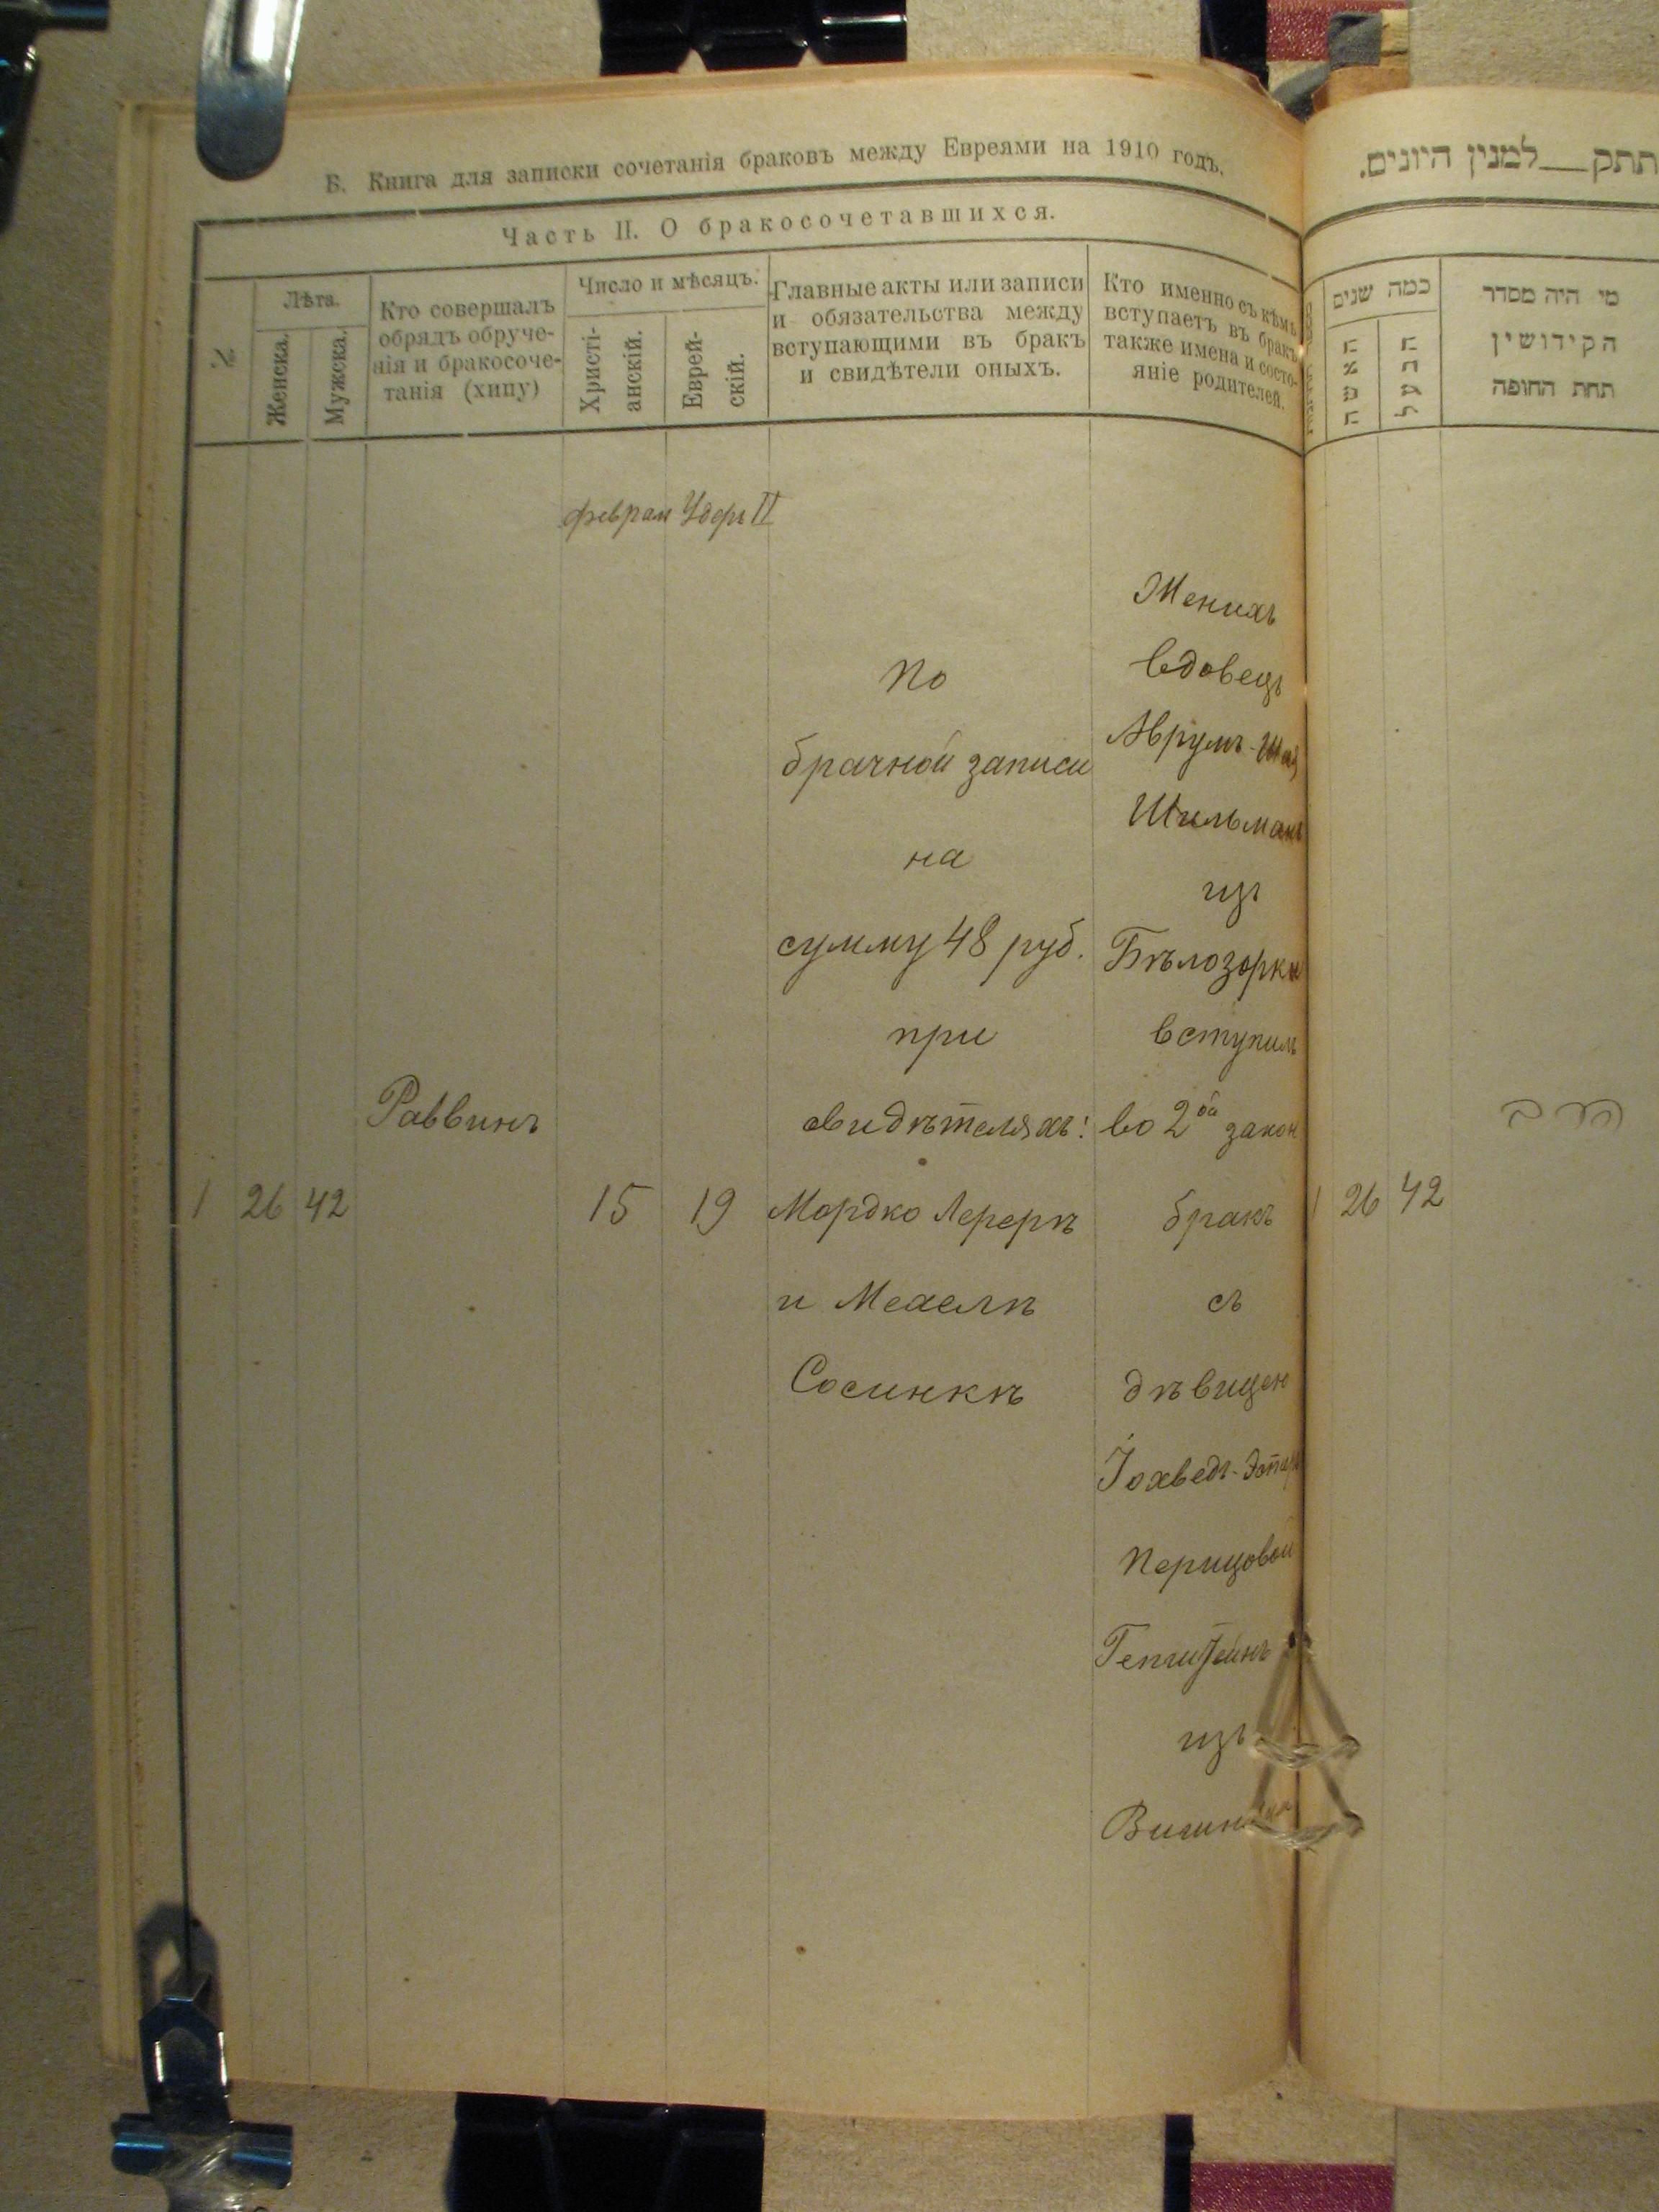 Б. Книга для записки сочетанія браковъ между Евреями на 1910 годъ.
Часть II. О бракосочетавшихся.
№
Лѣта.
Женска.
Мужска.
Кто совершалъ
обрядъ обруче-
нія и бракосоче-
танія (хипу)
Число и мѣсяцъ.
Христі-
анскій.
Еврей-
скій.
Главные акты или записи
и обязательства между
вступающими въ бракъ
и свидѣтели оныхъ.
Кто именно съ кѣмъ
вступаетъ въ бракъ
также имена и состо-
яніе родителей.
1
26
42
Раввинъ
феврал
15
Удеръ II
19
По
брачной записи
на
сумму 48 руб.
при
свидѣтеляхъ:
Мордко Лерерѣ
и Мехелѣ
Сосинкѣ
Женихъ
вдовецъ
Аврумъ-
Шильманъ
изъ
Бѣлозорки
вступилъ
во 2ой закон
бракъ
съ
дѣвицею
Іохведъ-
Перицовой
изъ
תתק__למנין היונים.
כמה שנים
האשה
הבעל
מי היה מסדר
הקידושין
תחת החופה
1
26
42
הרב